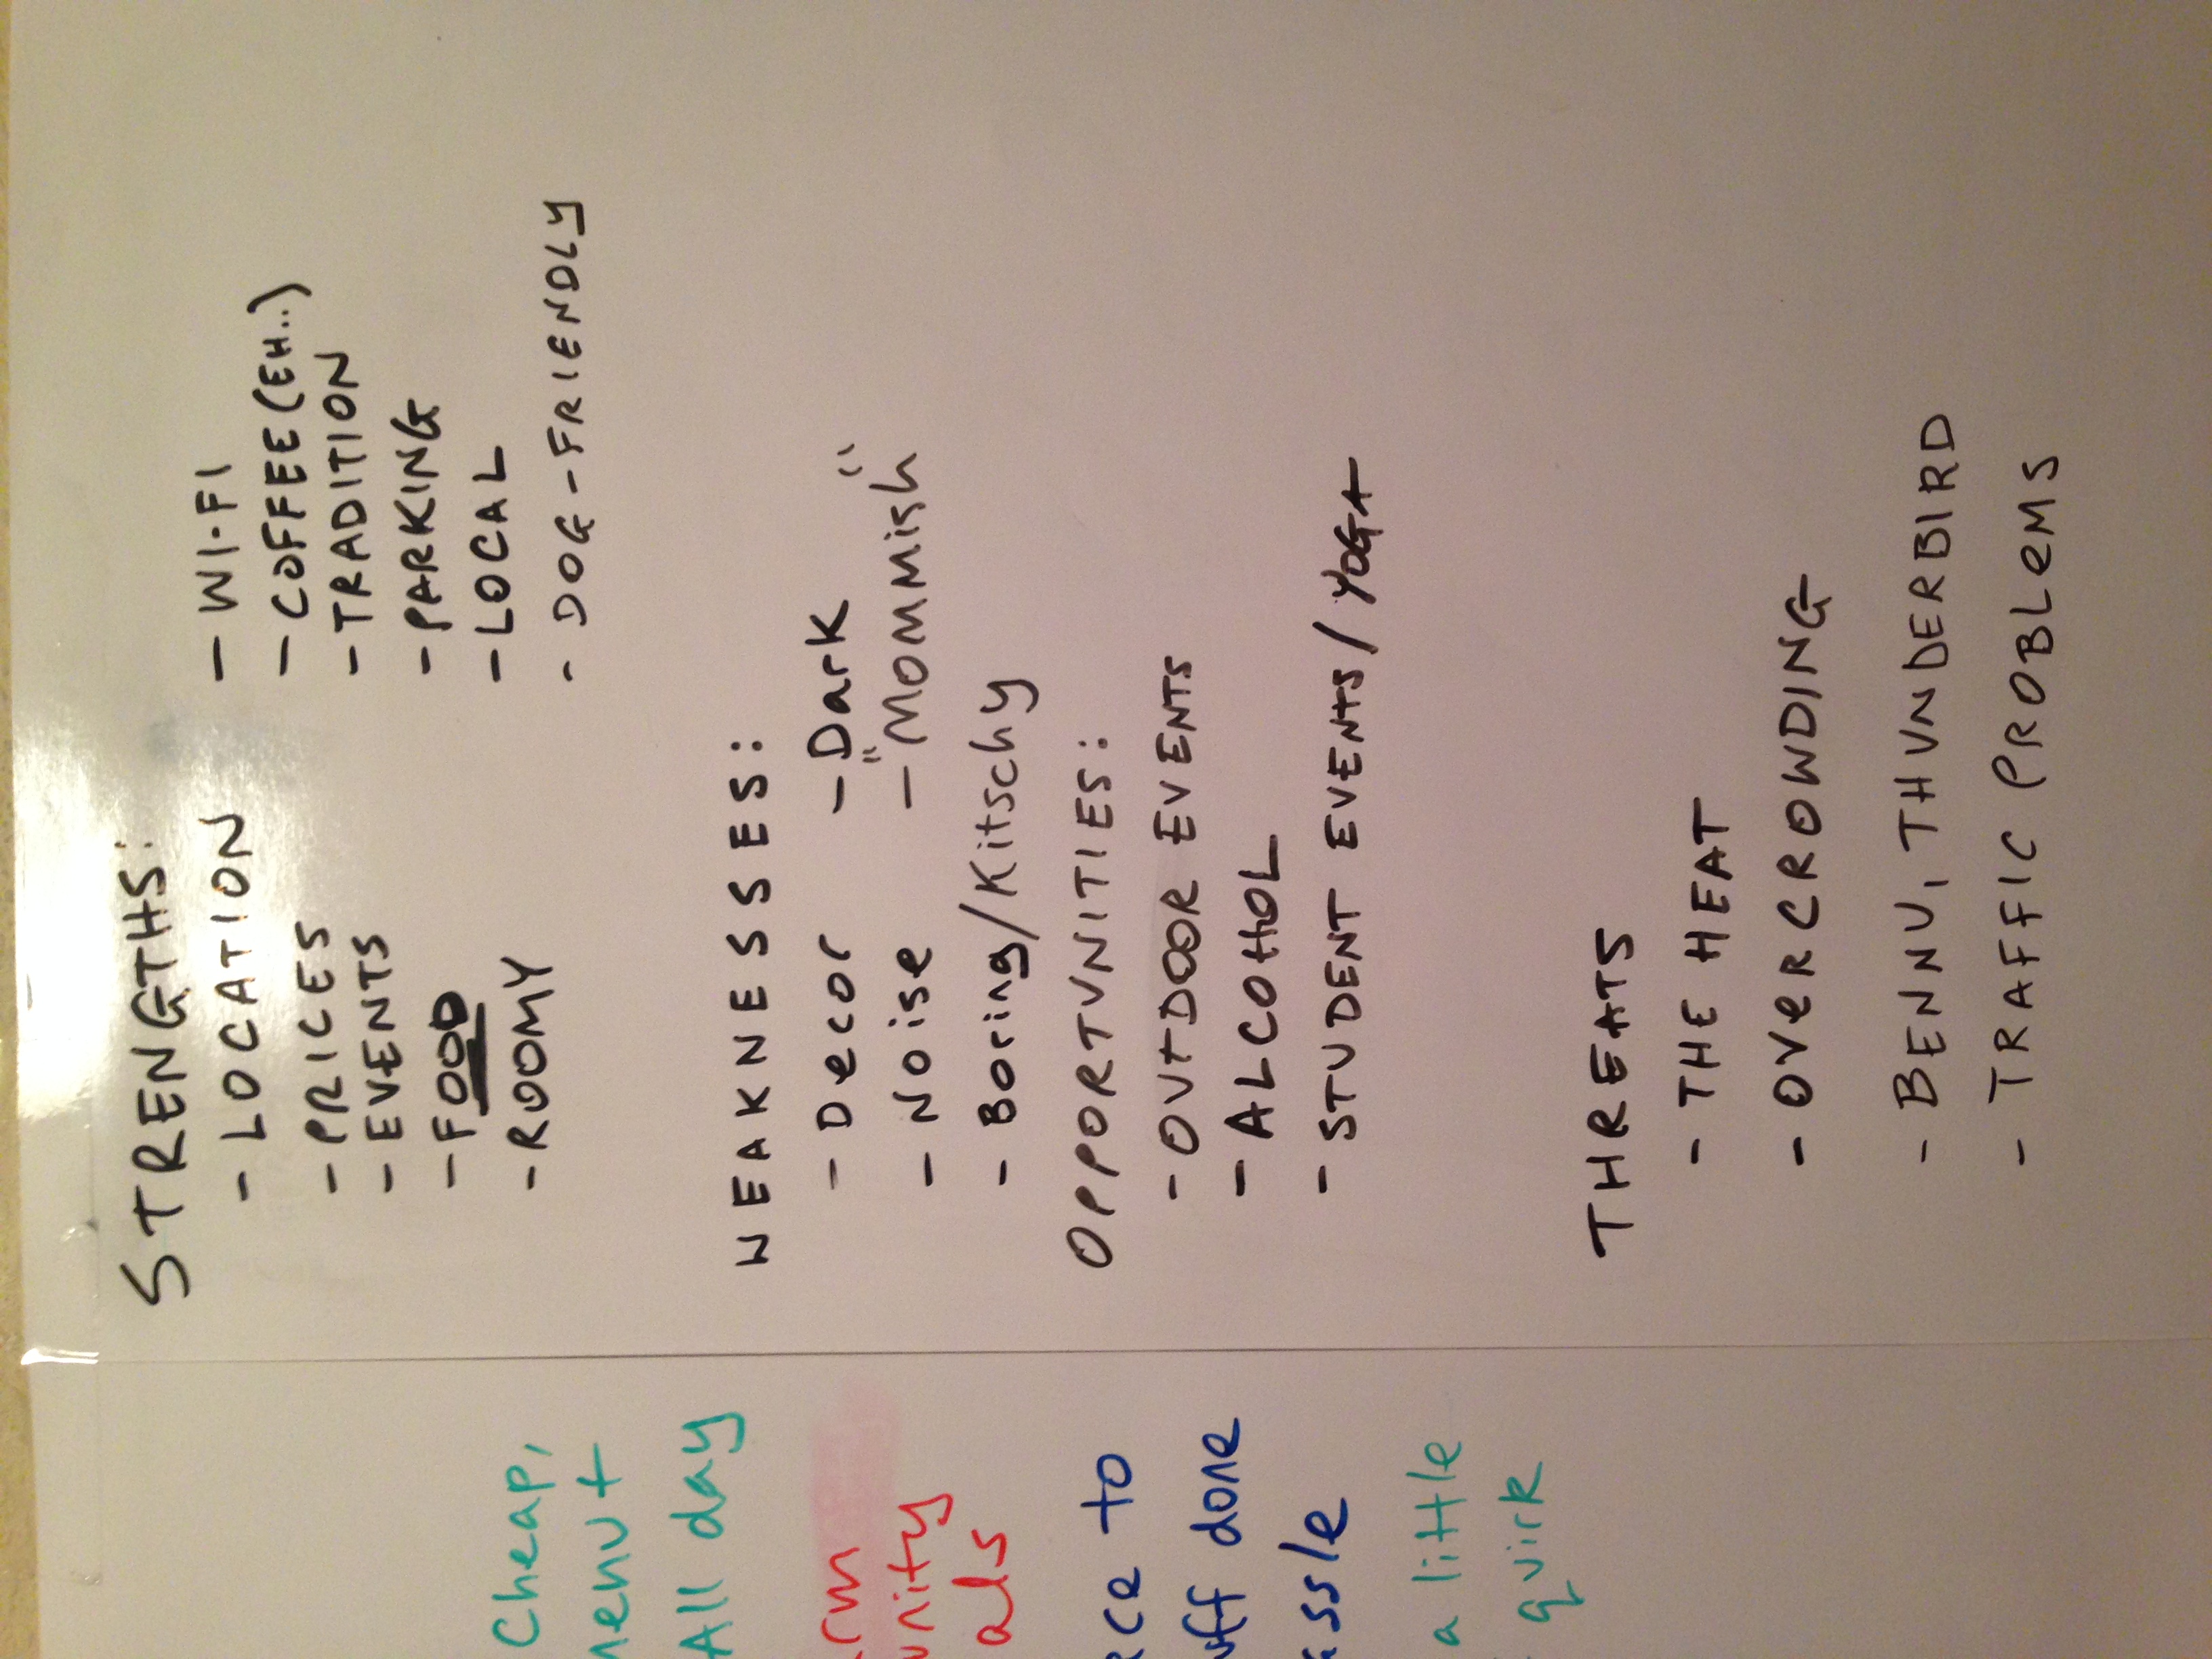 Cheap,
All day
als
to
done
a little
quirk
STRENGTHS:
- LOCATION
- PRICES
- EVENTS
- FOOD
- ROOMY
- WI-FI
- COFFEE (EH..)
- TRADITION
- PARKING
- LOCAL
- DOG-FRIENDLY
WEAKNESSES:
- Decor
- Noise
- Boring/Kitschy
- Dark
- "Mommish"
OPPORTUNITIES:
- OUTDOOR EVENTS
- ALCOHOL
- STUDENT EVENTS / YOGA
THREATS
- THE HEAT
- OVERCROWDING
- BENNU, THUNDERBIRD
- TRAFFIC PROBLEMS